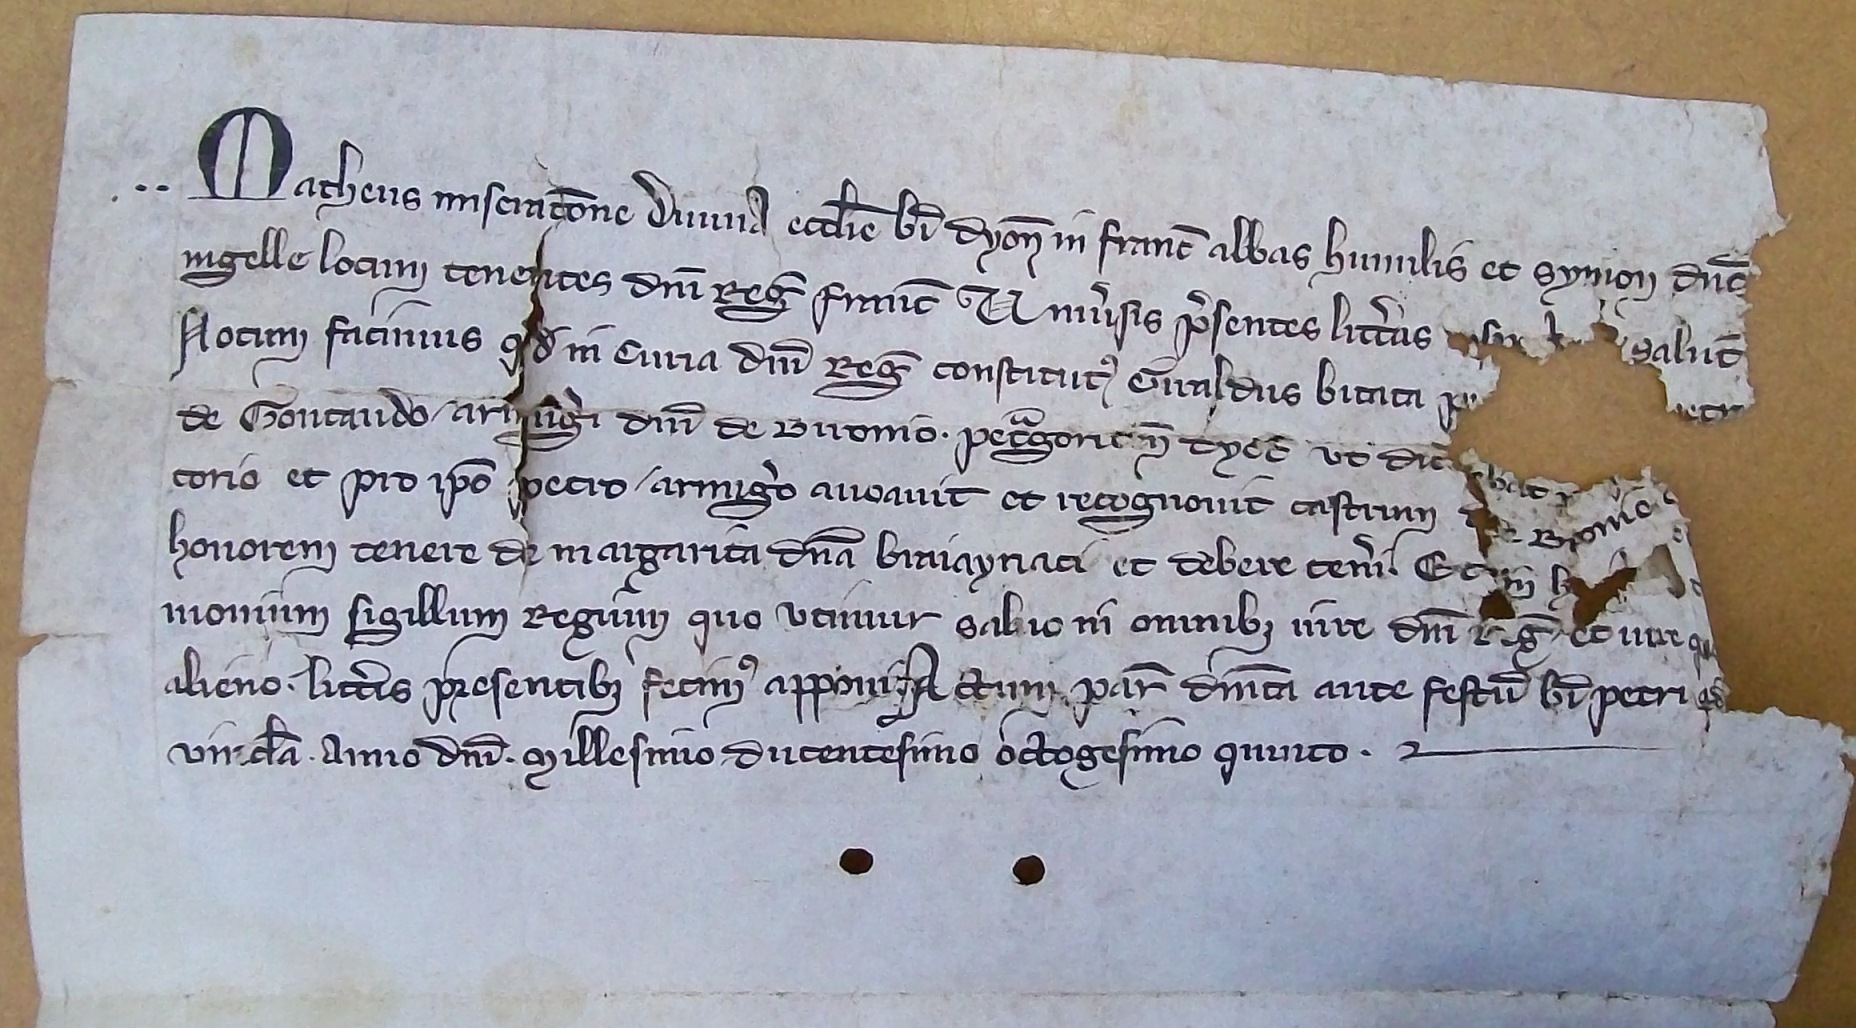 .. Matheus miseratōne Divina eccl̄ie bī dyoñ in franc̄ abbas humilis et Symon dnc̄
nigelle locum tenentes dnī Reḡ franc̄ Univ̓sis p̓sentes litt̓as salut̄
Notum facimus qd in Curia dnī Reḡ constitut᾿ Giraldus bitata
de Gontaudo armig̓i dnī de Bironio. pet͛goric̄ n̄ dyoc̄ ut dic
torio et pro ip̄o petro armig̓o avoavit et recognovit castrum de Bironio
honorem tenere de margarita dnā braiayriaci et debere ten̓i. Et in
monium sigillum Regium quo utimur salvo in omnibꝫ iure dnī Reḡ et iure q
alieno. litt̓is presentibꝫ fecim᾿ apponi. Actum par̄ dnīca ante festū bī petri ad
vin̄cl̄a. Anno dnī. Millesimo ducentesimo octogesimo quinto.